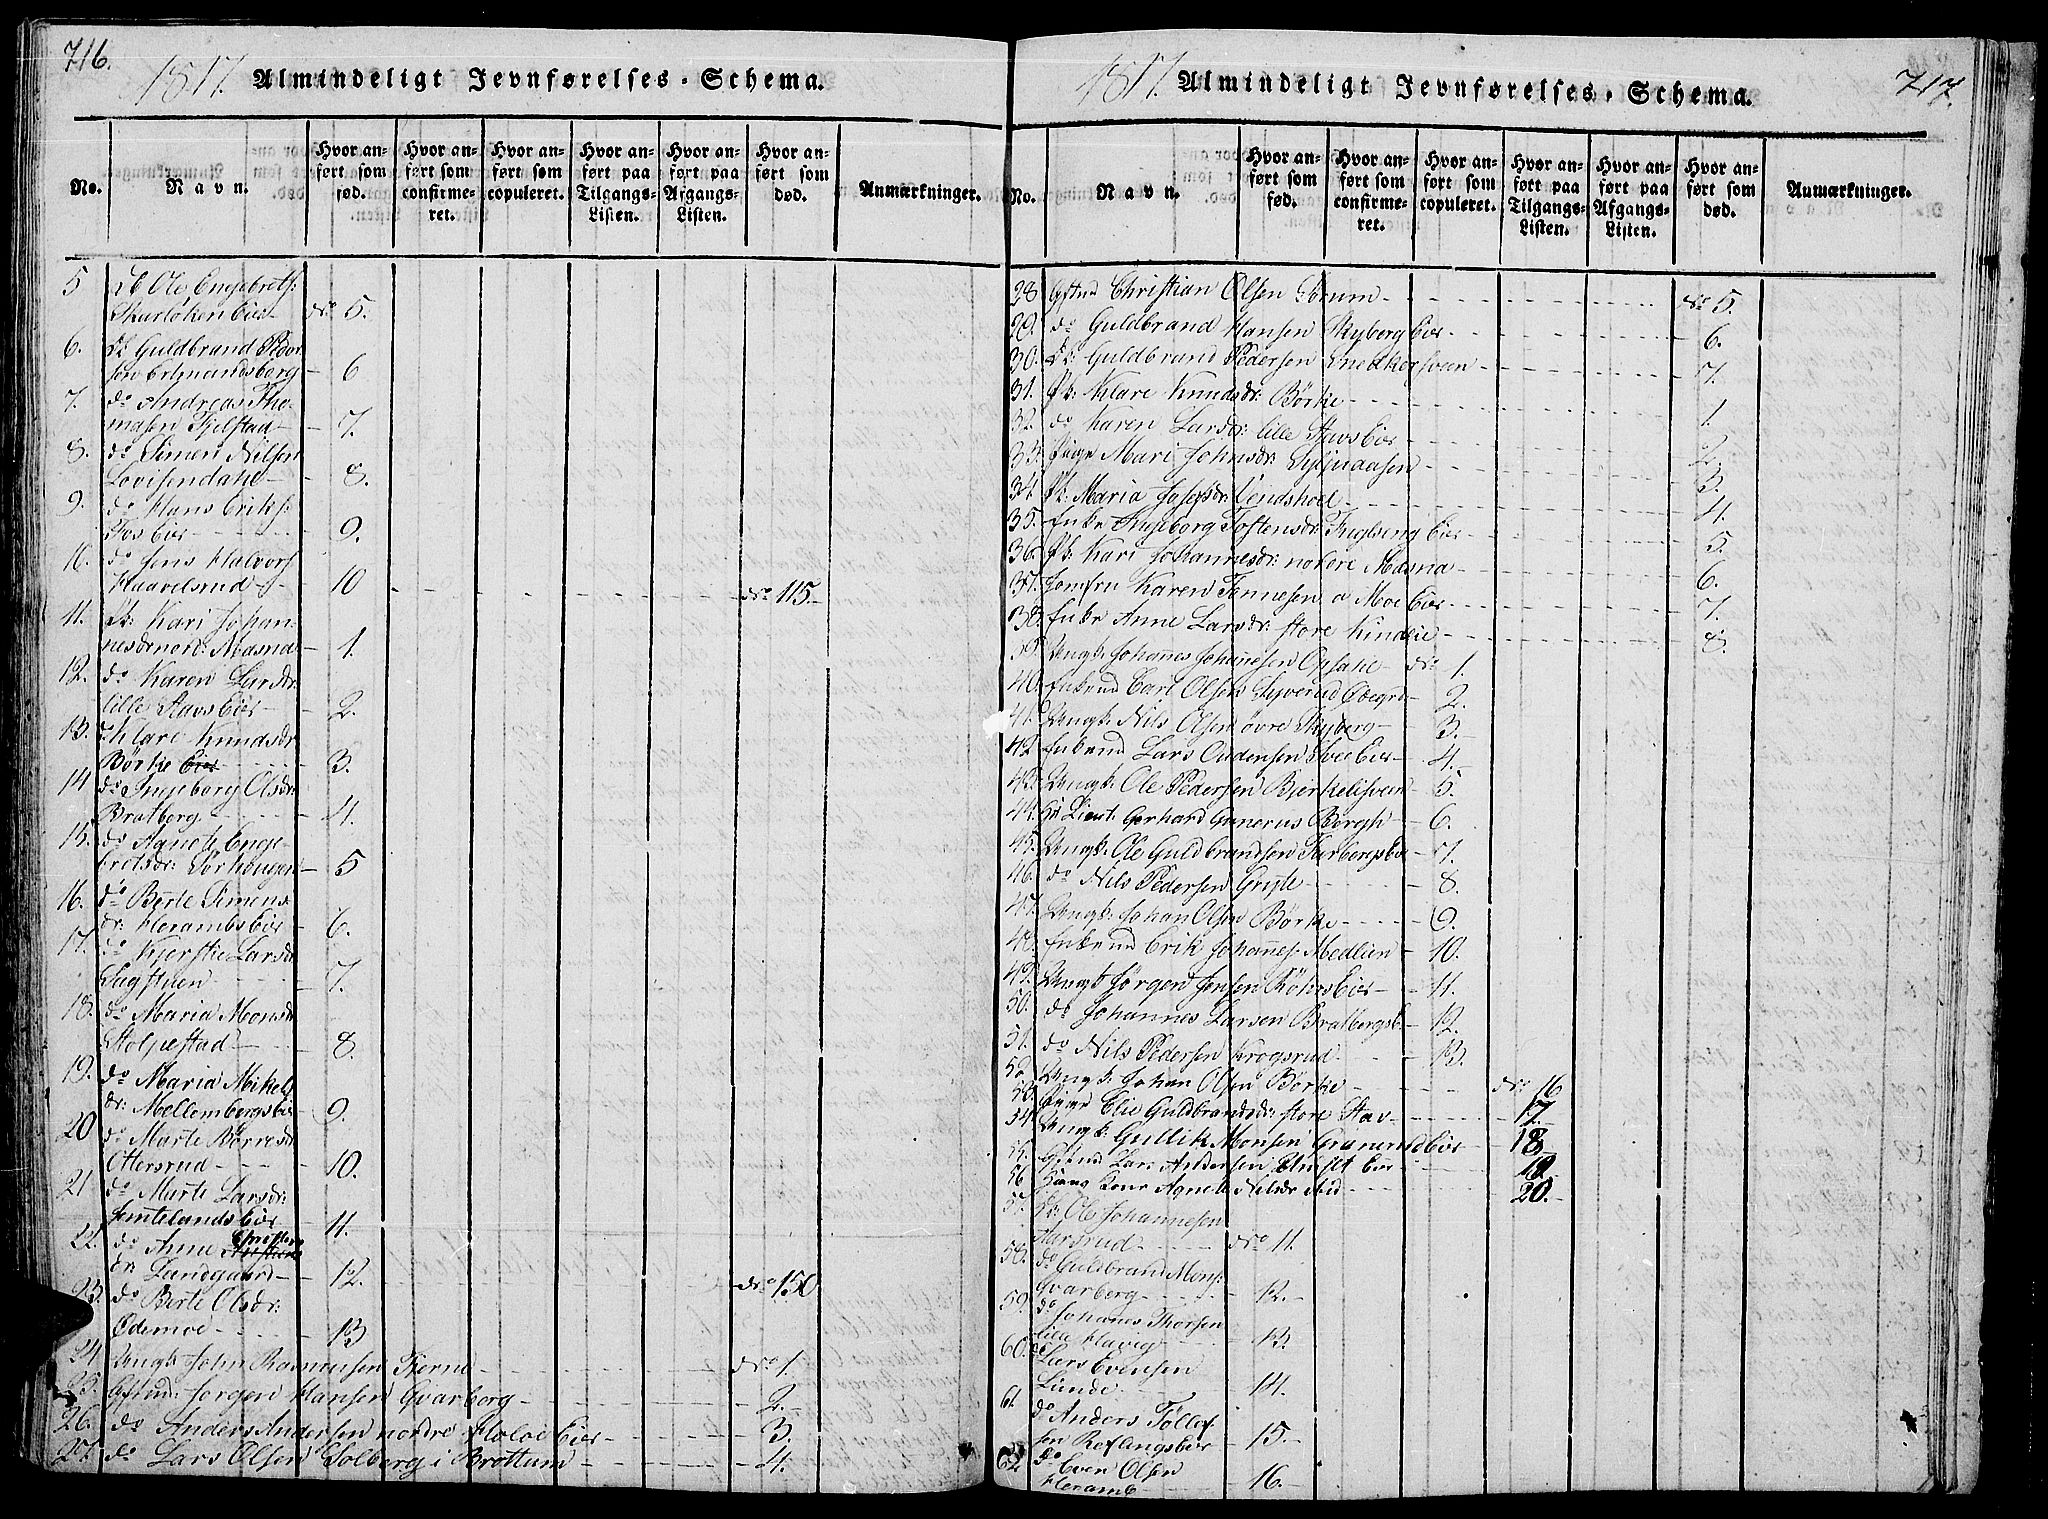 716.
1817. Almindeligt Jevnførelses-Schema.
No. Navn. Hvor anført som fød. Hvor anført som confirmeret. Hvor anført som copuleret. Hvor anført paa Tilgangs-Listen. Hvor anført paa Afgangs-Listen. Hvor anført som død. Anmærkninger.
5 Db Ole Engebrets:
Skurløken Eier - do 5.
6. Db Guldbrand Peder
sen Erlmandsberg - 6
7. do Andreas Tho-
masen Fjelstad - 7.
8. do Simen Nilsen
Lovisendahl - 8.
9. do Hans Eriks:
Fos Eier - 9.
10. do Jens Halvors
Haavelsrud - 10 - do 115.
11. Pk: Kari Johan-
nesdr nord: Mæsna - 1.
12. do Karen Larsdr:
lille Stavs Eier - 2.
13. do Klare Knudsdr
Børke Eier - 3.
14 do Ingeborg Olsdr:
Bratberg - 4.
15. do Agnete Enge-
bretsdr: Sørhougen - 5
16. do Berte Simens
dr: Herambs Eier - 6.
17. do Kjerstie Larsdr
Sagstuen - 7.
18. do Maria Monsdr
Stolpestad - 8.
19. do Maria Mikels
dr: Mellembergs Eier - 9.
20 do Marte Børresdr
Ottersrud - 10.
21 do Marte Larsdr:
Jemtelands Eier - 11.
22. do Anne
dr Landgaard - 12. - do 150
23. do Berte Olsdr:
Ødemoe - 13
24 Ungk: John Rasmusen Tjerne - do 1.
25. Gftmd: Jørgen Hansen Gvarberg - 2.
26. do Anders Andersen nordre Holoe Eier - 3.
27. do Lars Olsen Solberg i Brøttum - 4.
717.
1817. Almindeligt Jevnførelses-Schema.
No. Navn. Hvor anført som fød. Hvor anført som confirmeret. Hvor anført som copuleret. Hvor anført paa Tilgangs-Listen. Hvor anført paa Afgangs-Listen. Hvor anført som død. Anmærkninger.
28 Gftmd Christian Olsen Sørum - do 5.
29. do Guldbrand Hansen Skyberg Eier - 6.
30. Db: Guldbrand Pedersen Snedkersveen - 7.
31. Pk: Klare Knudsdr: Børke - 1.
32. do Karen Larsdr: lille Stavs Eier - 2.
33. Pige Mari Johnsdr: Syljuaasen - 3.
34. Pk: Maria Josefsdr: - 4.
35. Enke Ingeborg Tostensdr: Fuglseng Eier - 5.
36. Pk: Kari Johannesdr: nordre Mæsna - 6.
37. Jomfru Karen Tønnesen a Moe Eier - 7.
38. Enke Anne Larsdr: store Kindlie - 8.
39 Ungk: Johañes Johañesen Opsahl - do 1.
40. Enkemd Carl Olsen Syverud - 2.
41. Ungk: Nils Olsen øvre Skyberg - 3.
42 Enkemd Lars Oudensen Svee Eier - 4.
43. Ungk: Ole Pedersen Bjerkelisveen - 5.
44. Hr Lieut: Gerhard Gunerus Bergh - 6.
45. Ungk: Ole Guldbrandsen - 7.
46. do Nils Pedersen Gryte - 8.
47. Ungk: Johan Olsen Børke - 9.
48. Enkemd Erik Johañes: Medlien - 10.
49. Ungk Jørgen Jensen Røhrs Eier - 11.
50. do Johannes Larsen Bratbergs E: - 12.
51. do Nils Pedersen Krogsrud - 13.
52 Ungk: Johan Olsen Børke - do 16
53. Pige Elie Guldbrandsdr: store Stav - 17.
54 Ungk: Gullik Monsen Granerud Eier - 18.
55. Gftmd Lars Andersen Eier - 19
56 Hans Kone Agnete Nilsdr - 20.
57. Db: Ole Johannesen
Aarsrud - do 11.
58. do Guldbrand Mons:
Gvarberg - 12.
59. do Johanes Thorsen
Havig - 13.
60. do Lars Evensen
Lunde - 14.
61 do Anders Tollef
sen Reflingseier - 15.
62 do Even Olsen
Heramb - 16.